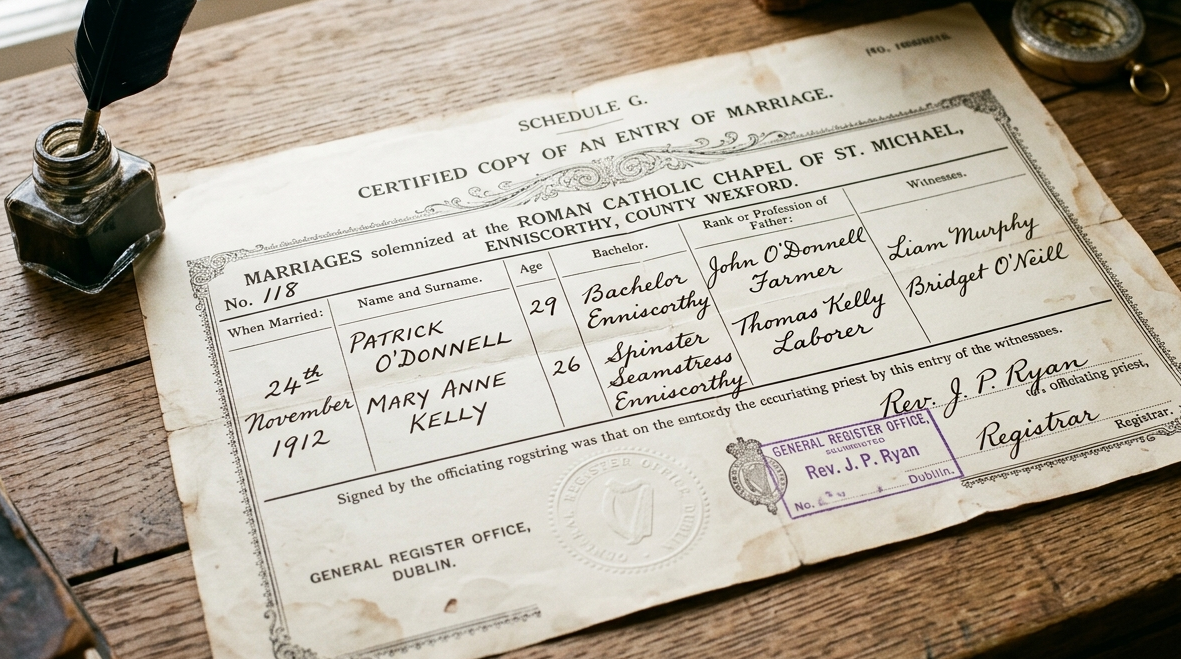 SCHEDULE G.
CERTIFIED COPY OF AN ENTRY OF MARRIAGE.
MARRIAGES solemnized at the ROMAN CATHOLIC CHAPEL OF ST. MICHAEL,
ENNISCORTHY, COUNTY WEXFORD.
No. 118
When Married:
Name and Surname.
Age
Bachelor.
Rank or Profession of
Father:
Witnesses.
24th
November
1912
PATRICK
O'DONNELL
29
Bachelor
Enniscorthy
John O'Donnell
Farmer
Liam Murphy
Bridget O'Neill
MARY ANNE
KELLY
26
Spinster
Seamstress
Enniscorthy
Thomas Kelly
Laborer
Signed by the officiating rogstring was that on the entordy the eccuriating priest by this entry of the witnessnes.
Rev. J. P. Ryan
officiating priest,
Registrar
Registrar.
GENERAL REGISTER OFFICE,
Rev. J. P. Ryan
No.
Dublin.
GENERAL REGISTER OFFICE DUBLIN
GENERAL REGISTER OFFICE,
DUBLIN.